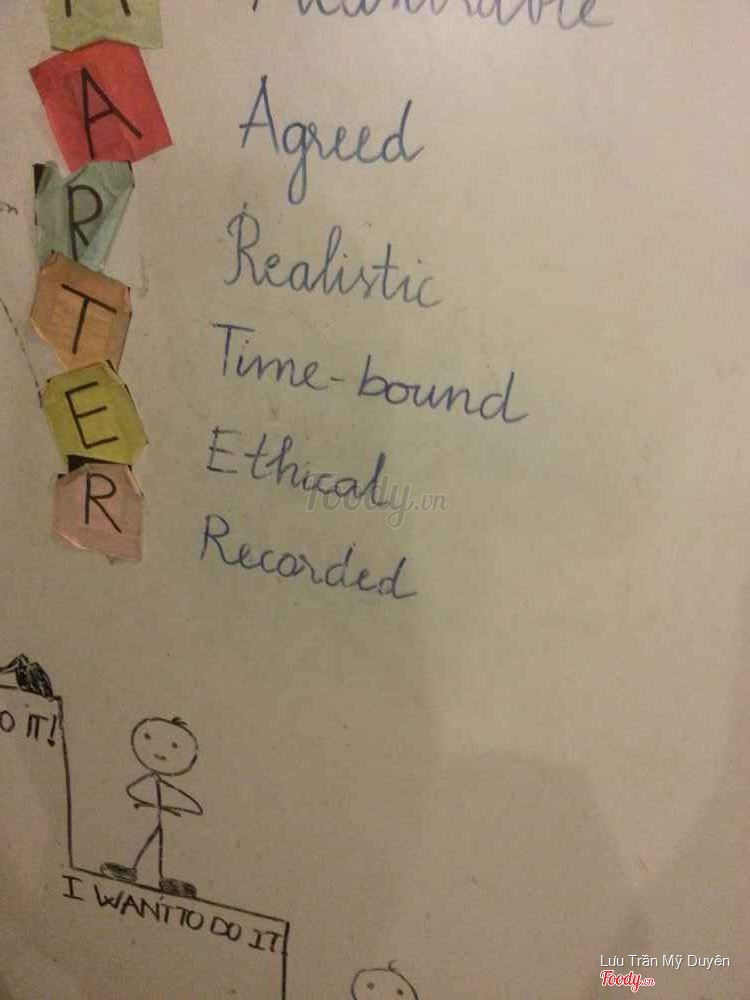 M Measurable
A Agreed
R Realistic
T Time-bound
E Ethical
R Recorded
Foody.vn
O IT!
I WANT TO DO IT
Lưu Trần Mỹ Duyên
Foody.vn